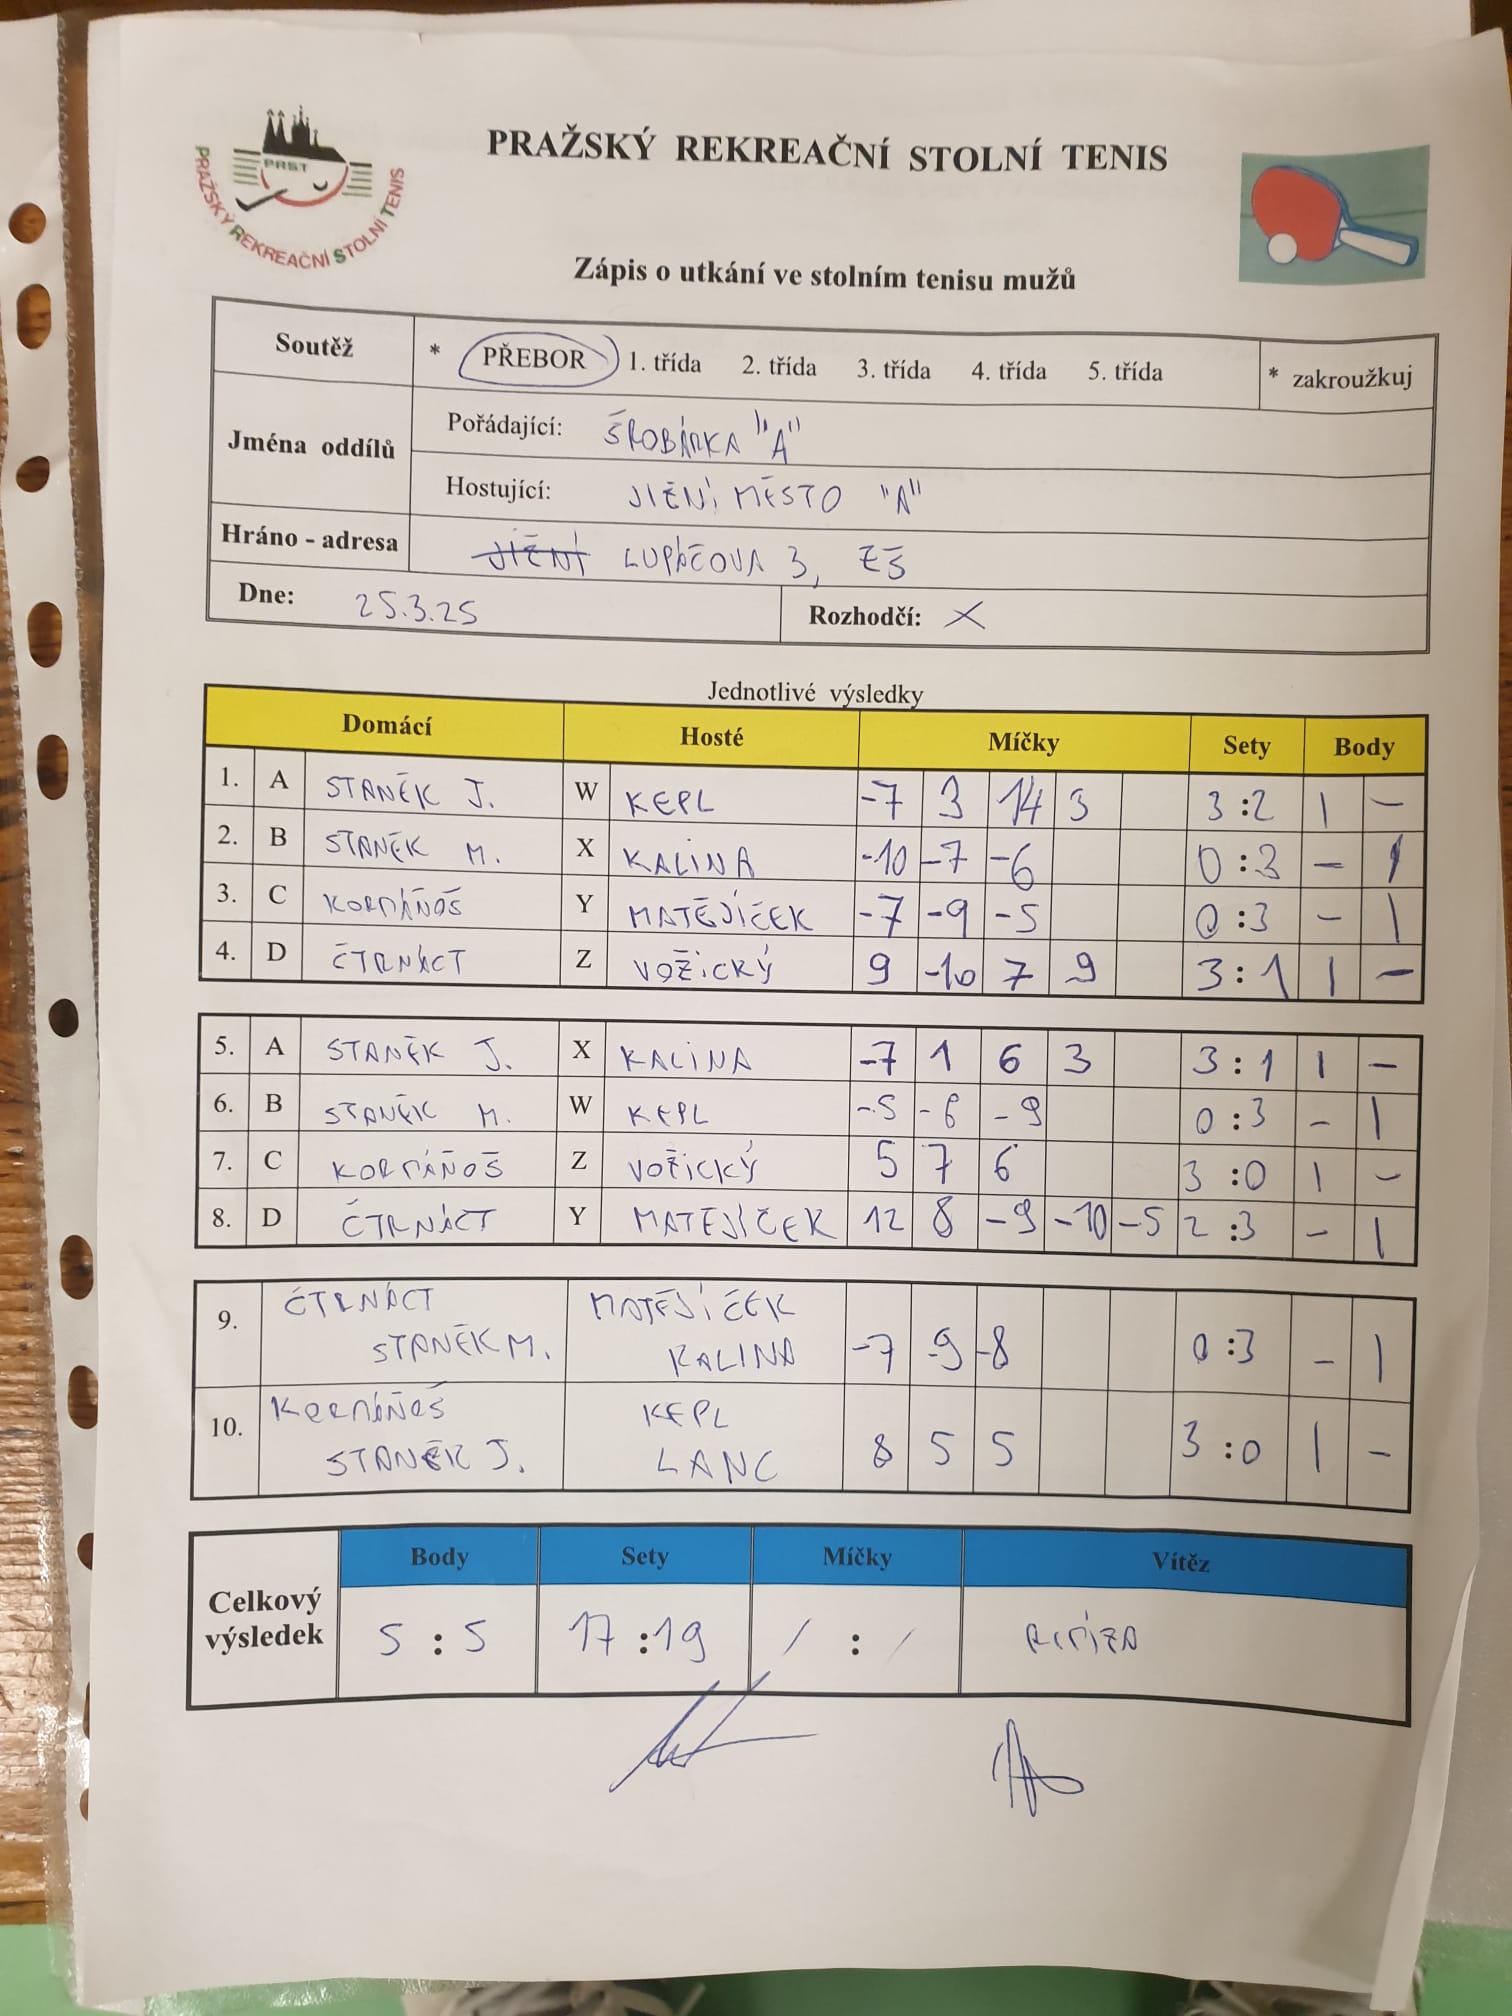 PRST
PRAŽSKÝ REKREAČNÍ STOLNÍ TENIS
PRAŽSKÝ REKREAČNÍ STOLNÍ TENIS
Zápis o utkání ve stolním tenisu mužů
Soutěž * PŘEBOR 1. třída 2. třída 3. třída 4. třída 5. třída * zakroužkuj
Jména oddílů
Pořádající: ŠROBÁRKA "A"
Hostující: JIŽNÍ MĚSTO "A"
Hráno - adresa JIŽNÍ LUPÁČOVA 3, ZŠ
Dne: 25.3.25 Rozhodčí: X
Jednotlivé výsledky
Domácí Hosté Míčky Sety Body
1. A STANĚK J. W KEPL -7 3 14 3 3:2 1 -
2. B STANĚK M. X KALINA -10 -7 -6 0:3 - 1
3. C KORMÁŇOŠ Y MATĚJÍČEK -7 -9 -5 0:3 - 1
4. D ČTRNÁCT Z VOŽICKÝ 9 -10 7 9 3:1 1 -
5. A STANĚK J. X KALINA -7 1 6 3 3:1 1 -
6. B STANĚK M. W KEPL -5 -6 -9 0:3 - 1
7. C KORMÁŇOŠ Z VOŽICKÝ 5 7 6 3:0 1 -
8. D ČTRNÁCT Y MATEJÍČEK 12 8 -9 -10 -5 2:3 - 1
9. ČTRNÁCT MATĚJÍČEK
STANĚK M. KALINA -7 -9 -8 0:3 - 1
10. KORMÁŇOŠ KEPL
STANĚK J. LANC 8 5 5 3:0 1 -
Body Sety Míčky Vítěz
Celkový výsledek 5:5 17:19 / : / REMÍZA